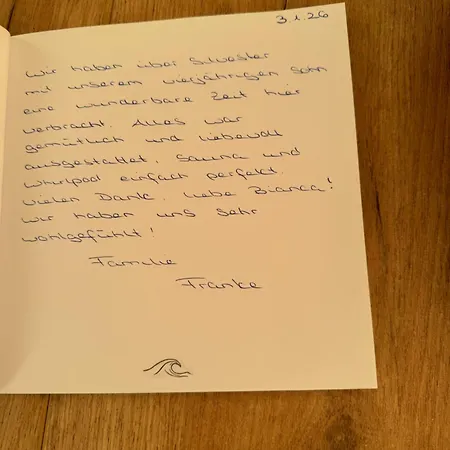 3.1.26
Wir haben über Silvester
mit unserem vierjährigen Sohn
eine wunderbare Zeit hier
verbracht. Alles war
gemütlich und liebevoll
ausgestattet. Sauna und
Whirlpool einfach perfekt.
Vielen Dank, liebe Bianca!
Wir haben uns sehr
wohlgefühlt!
Familie
Franke